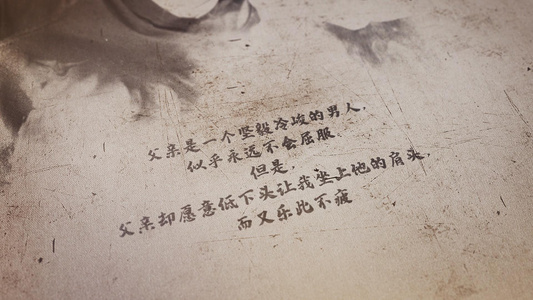 父亲是一个坚毅冷峻的男人，
似乎永远不会屈服。
但是，
父亲却愿意低下头让我坐上他的肩头，
而又乐此不疲